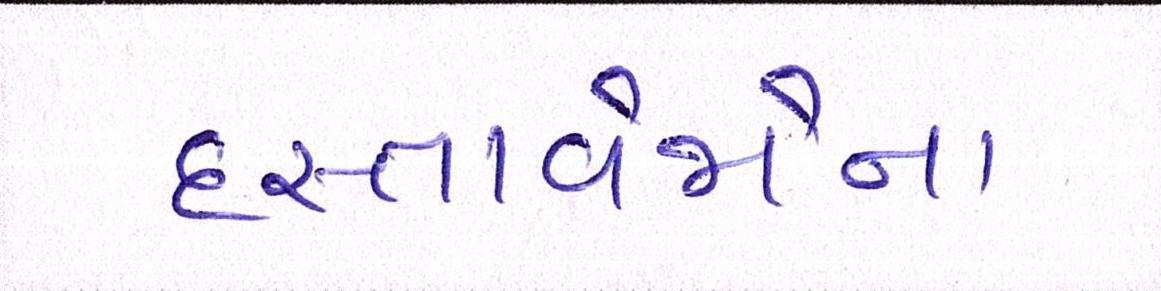 દસ્તાવેજોના